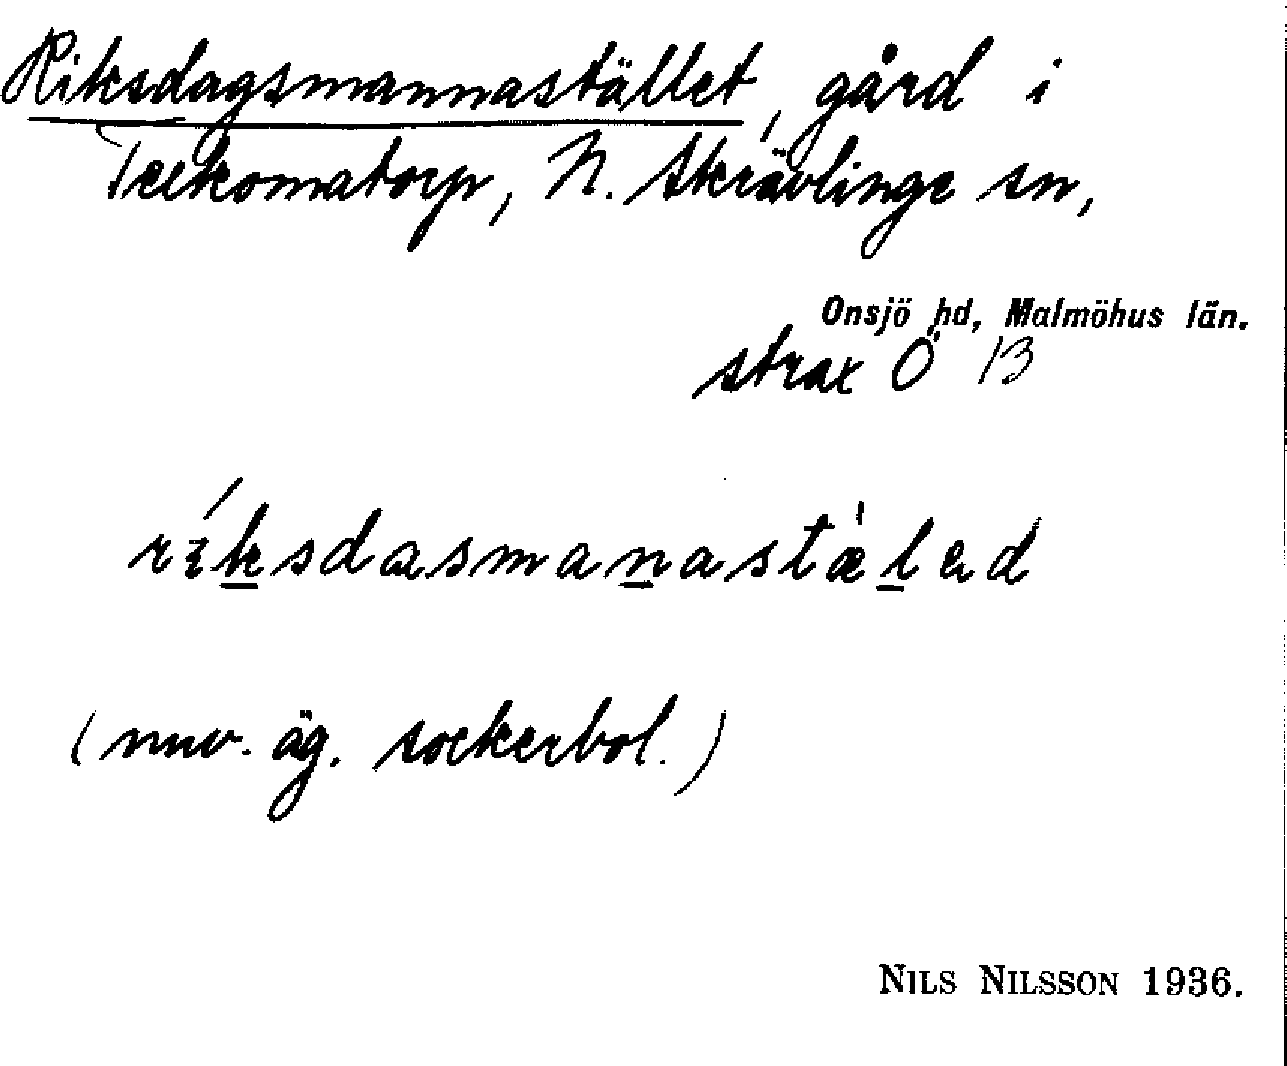 Riksdagsmannastället, gård i
Teckomatorp, N. Skrävlinge sn,
Onsjö hd, Malmöhus län.
strax Ö 13
ríksdasmanastàled
(nuv. äg. sockerbol.)
NILS NILSSON 1936.